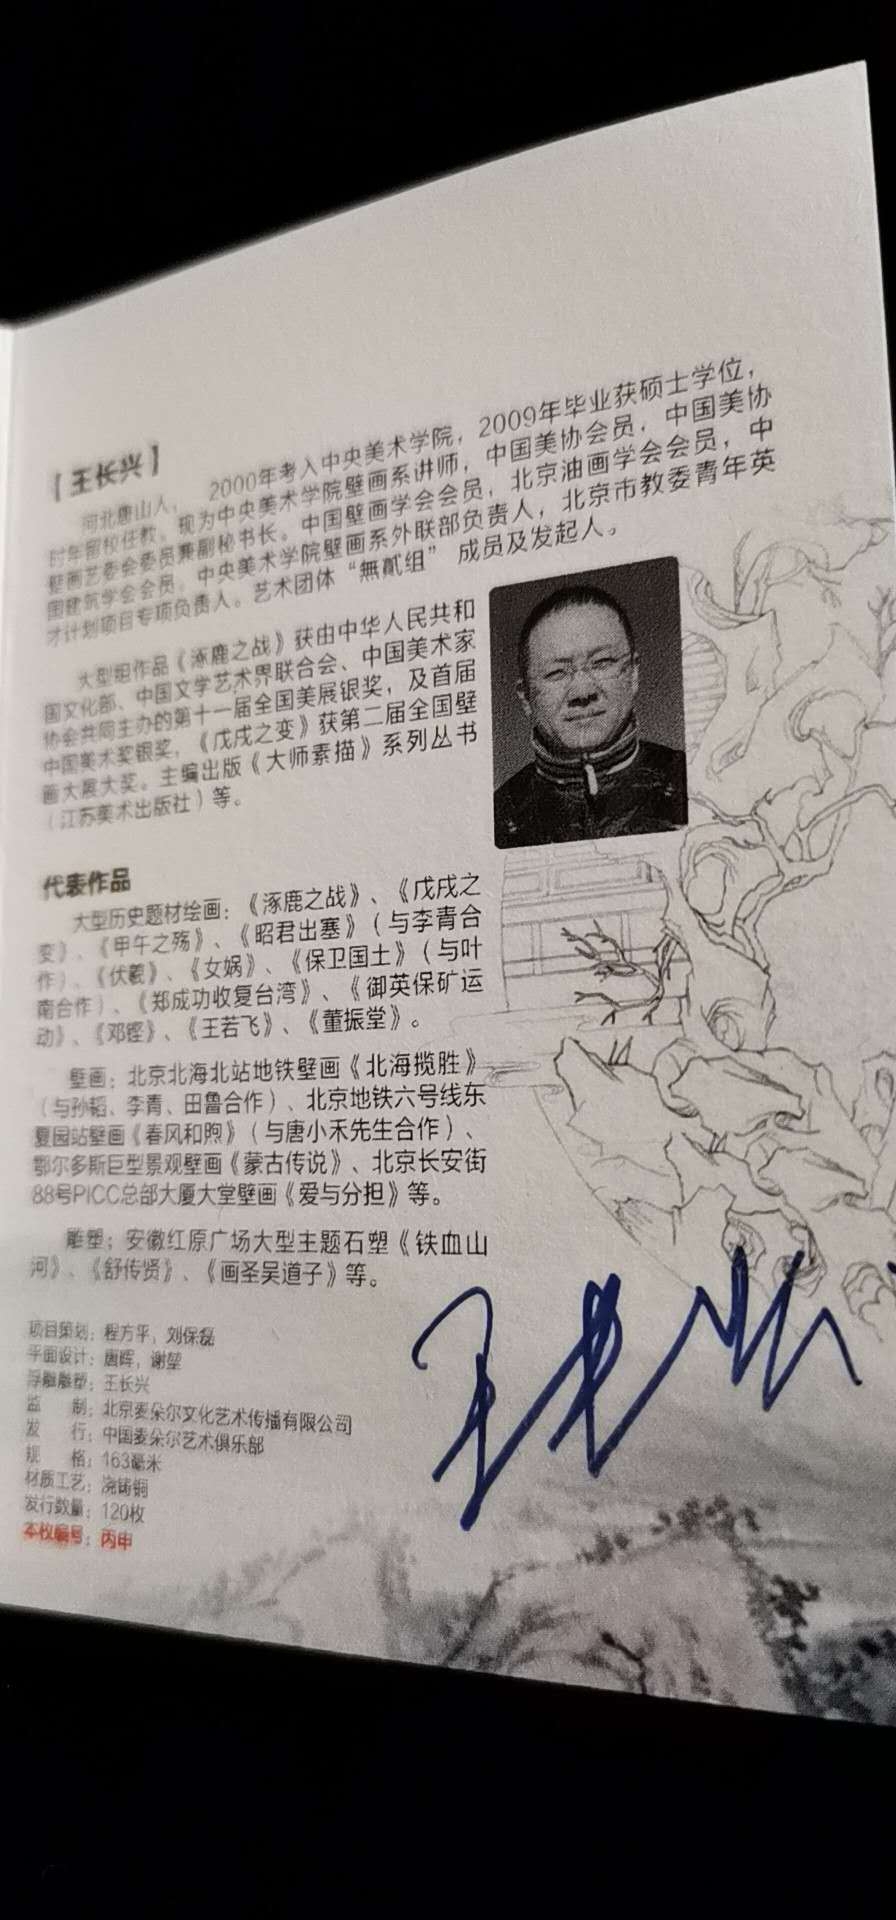 【王长兴】
河北唐山人， 2000年考入中央美术学院，2009年毕业获硕士学位，
时年留校任教。现为中央美术学院壁画系讲师，中国美协会员，中国美协
壁画艺委会委员兼副秘书长。中国壁画学会会员，北京油画学会会员，中
国建筑学会会员，中央美术学院壁画系外联部负责人，北京市教委青年英
才计划项目专项负责人。艺术团体“無貳组” 成员及发起人。
大型组作品《涿鹿之战》获由中华人民共和
国文化部、中国文学艺术界联合会、中国美术家
协会共同主办的第十一届全国美展银奖，及首届
中国美术奖银奖，《戊戌之变》获第二届全国壁
画大展大奖。主编出版《大师素描》系列丛书
（江苏美术出版社）等。
代表作品
大型历史题材绘画：《涿鹿之战》、《戊戌之
变》、《甲午之殇》、《昭君出塞》（与李青合
作）、《伏羲》、《女娲》、《保卫国土》（与叶
南合作）、《郑成功收复台湾》、《御英保矿运
动》、《邓铿》、《王若飞》、《董振堂》。
壁画：北京北海北站地铁壁画《北海揽胜》
（与孙韬、李青、田鲁合作）、北京地铁六号线东
夏园站壁画《春风和煦》（与唐小禾先生合作）、
鄂尔多斯巨型景观壁画《蒙古传说》、北京长安街
88号PICC总部大厦大堂壁画《爱与分担》等。
雕塑：安徽红原广场大型主题石塑《铁血山
河》、《舒传贤》、《画圣吴道子》等。
项目策划：程方平，刘保磊
平面设计：唐晖，谢堃
浮雕雕塑：王长兴
监 制：北京麦朵尔文化艺术传播有限公司
发 行：中国麦朵尔艺术俱乐部
规 格：163毫米
材质工艺：浇铸铜
发行数量：120枚
本枚编号：丙申
王长兴